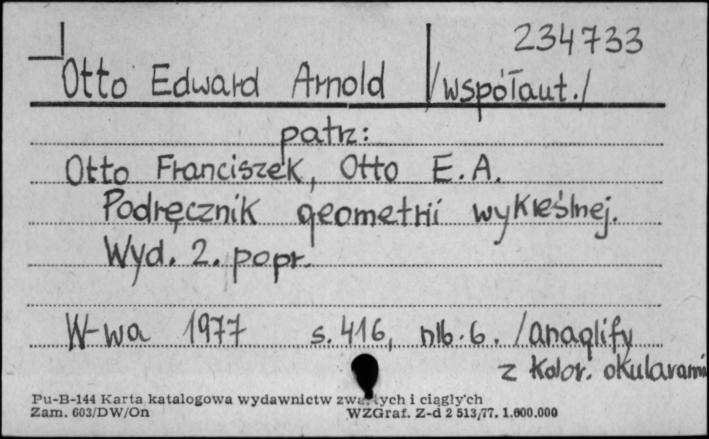 234733
Otto Edward Arnold /współaut./
patrz:
Otto Franciszek, Otto E.A.
Podręcznik geometrii wykreślnej.
Wyd. 2. popr.
W-wa 1977 s. 416, nlb. 6. /anaglify
z kolor. okularami
Pu-B-144 Karta katalogowa wydawnictw zwartych i ciągłych
Zam. 603/DW/On WZGraf. Z-d 2 513/77. 1.600.000